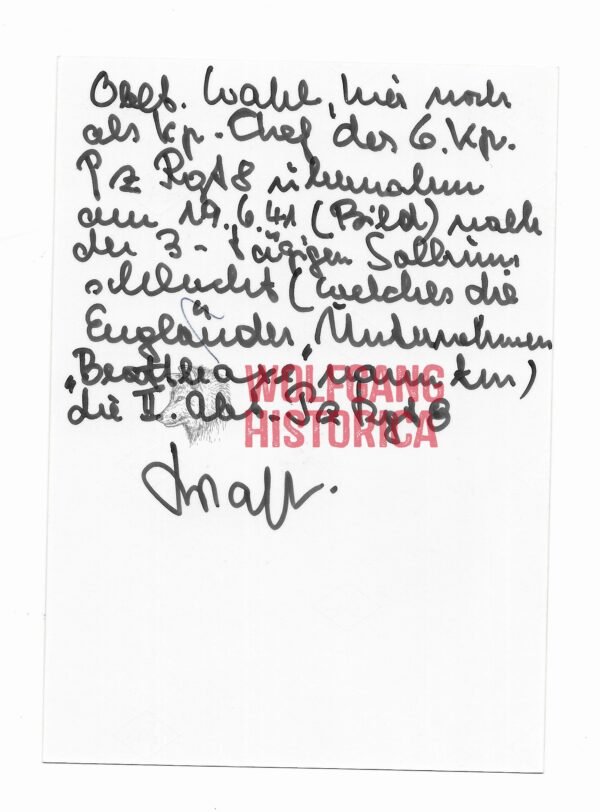 Oblt. Wahl, hier noch
als Kp.-Chef der 6. Kp.
Pz Rgt 8 übernahm
am 19.6.41 (Bild) nach
der 3-tägigen Sollum
schlacht (welches die
Engländer, Unternehmen
"Battleaxe" nannten)
die II. Abt. Pz Rgt 8
WOLFGANG
HISTORICA